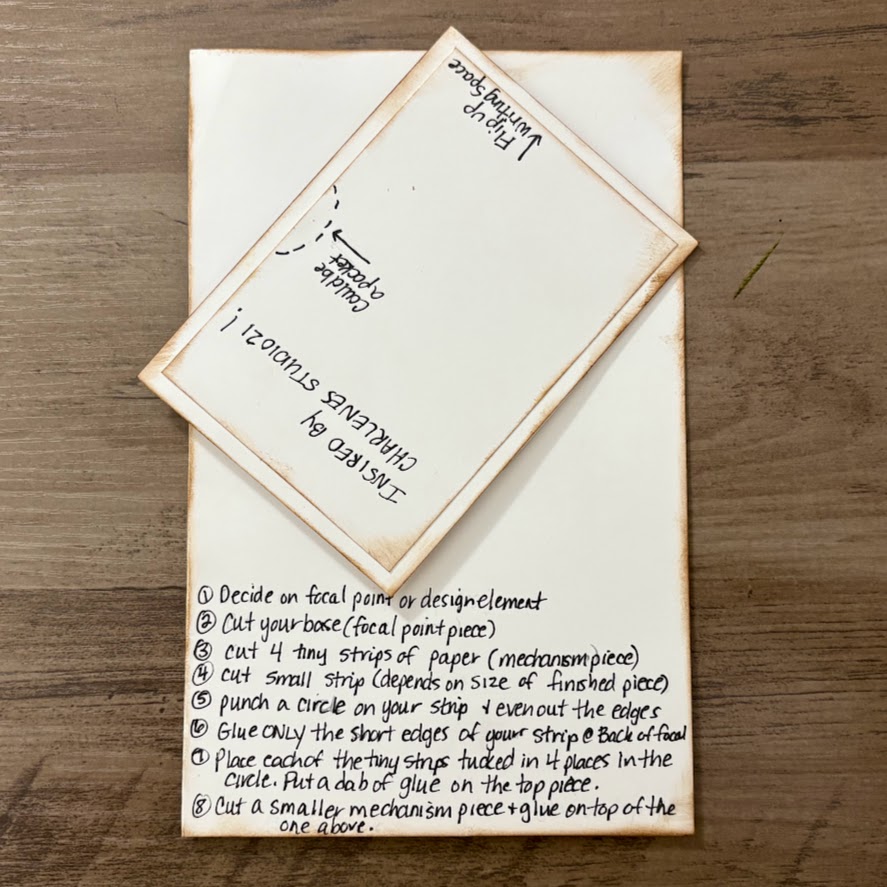 Flip up
↓ writing space
Could be
a pocket
INSIRED BY
CHARLENES STUDIO21!
① Decide on focal point or design element
② Cut your base (focal point piece)
③ cut 4 tiny strips of paper (mechanism piece)
④ cut small strip (depends on size of finished piece)
⑤ punch a circle on your strip & even out the edges
⑥ Glue ONLY the short edges of your strip @ Back of focal
⑦ Place each of the tiny strips tucked in 4 places in the
circle. Put a dab of glue on the top piece.
⑧ Cut a smaller mechanism piece + glue on top of the
one above.